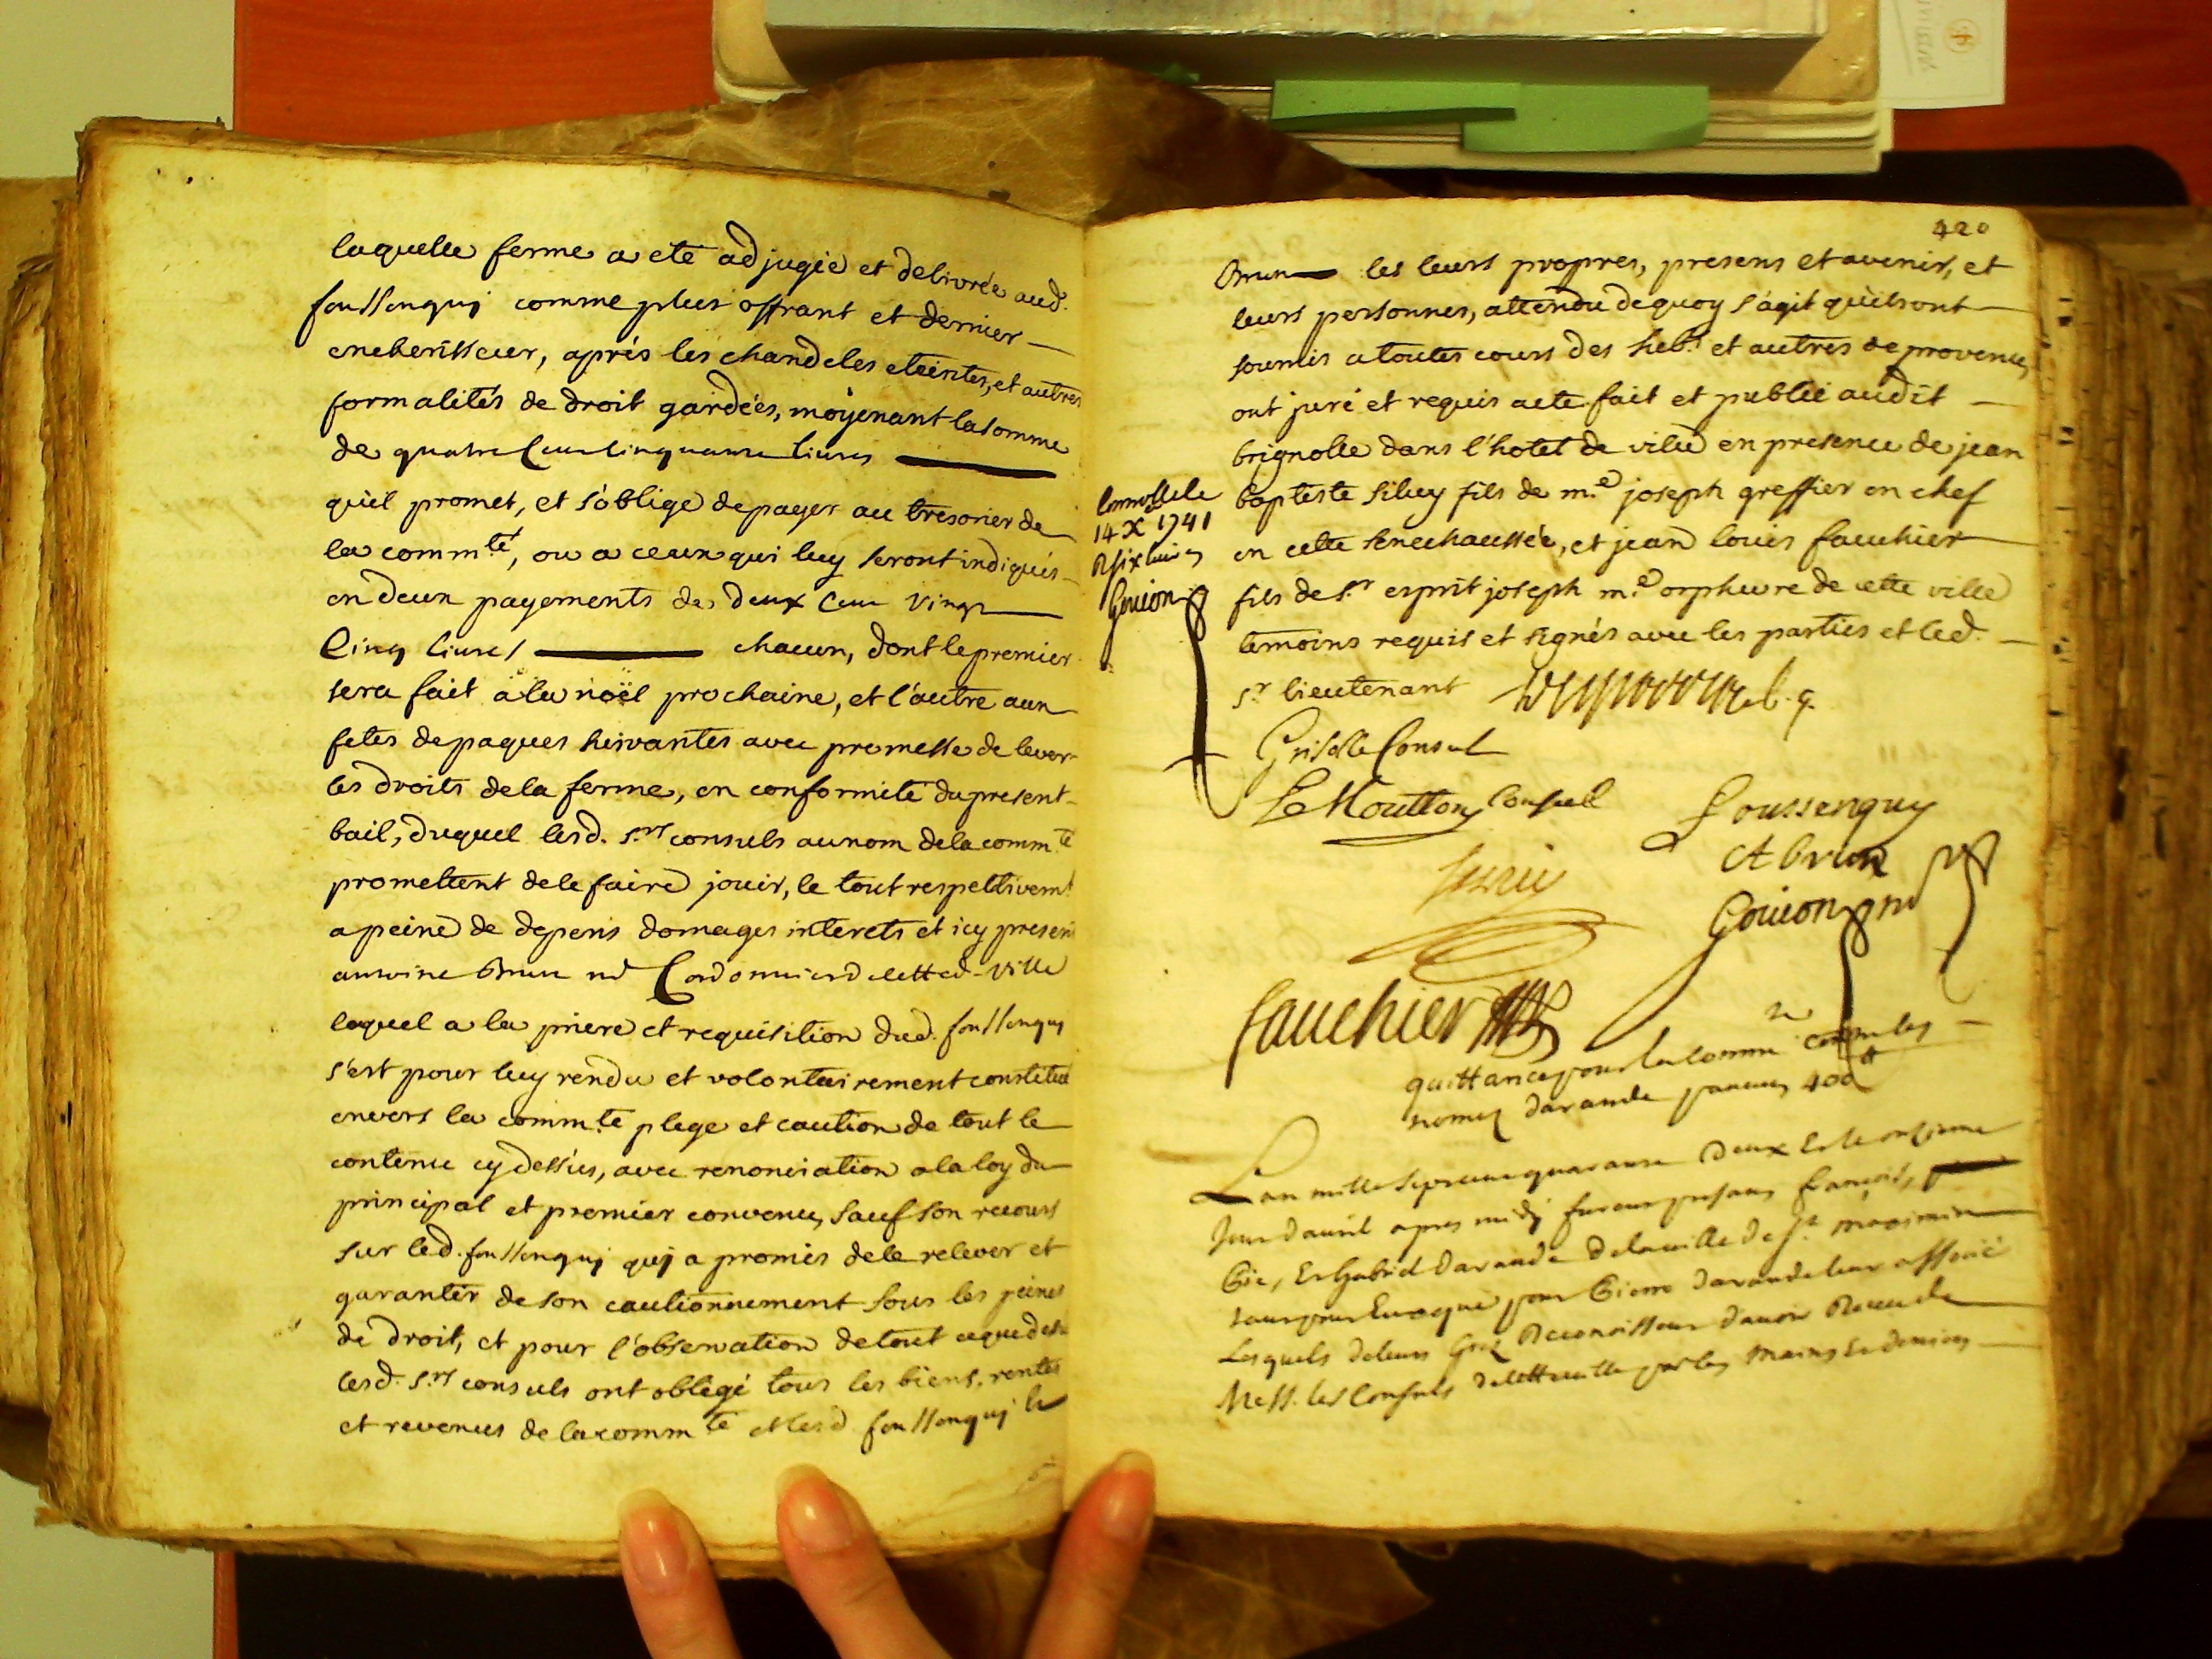 laquelle ferme a eté adjugée et delivrée aud.
foussenquy comme plus offrant et dernier
encherisseur, aprés les chandeles eteintes, et autres
formalités de droit gardées, moyenant la somme
de quatre Cens Cinquante Livres
qu'il promet, et s'oblige de payer au tresorier de
la comm.té, ou a ceux qui luy seront indiqués
en deux payements de deux Cens Vingt
Cinq Livres chacun, dont le premier
sera fait a la noël prochaine, et l'autre aux
fetes de paques suivantes avec promesse de lever
les droits de la ferme, en conformité du present
bail, duquel lesd. s.rs consuls au nom de la comm.té
promettent de le faire jouir, le tout respectivem.t
a peine de depens domages interets et icy present
antoine Brun md Cordonnier de cetted. Ville
lequel a la priere et requisition dud. foussenquy
s'est pour luy rendu et volontairement constitué
envers la comm.té plege et caution de tout le
contenu cy dessus, avec renonciation a la loy du
principal et premier convenu, sauf son recours
sur led. foussenquy quy a promis de le relever et
garantir de son cautionnement sous les peines
de droit, et pour l'observation de tout ce que dess.
lesd. s.rs consuls ont obligé tous les biens, rentes
et revenus de la comm.té et lesd. foussenquy et
420
Brun les leurs propres, presens et avenir, et
leurs personnes, attendu de quoy s'agit qu'ils ont
soumis a toutes cours des sub.ns et autres de provence,
ont juré et requis acte fait et publié audit
brignolle dans l'hotel de ville en presence de jean
baptiste siluy fils de m.e joseph greffier en chef
en cette senechaussée, et jean louis fauchier
fils de s.r esprit joseph m.e orphevre de cette ville
temoins requis et signés avec les parties et led.
s.r lieutenant
Controllé le
14 X 1741
R six livres
Gouion
Griselle Consul
Le Moutton Consul
Foussenquy
A Brun
Gouion
fauchier
quittance pour la comm.té contre les
nomez daran de 400
L'an mille sept cens quarante Deux Et le onzieme
Jour d'avril apres midy furent presens françois,
Et Gabriel Darande de la ville de S.t maximin
pour Pierre Darande leur associé
Lesquels de leurs Gréz Reconoissent d'avoir Receu de
Mess. les Consuls de cette ville par les mains Et deniers